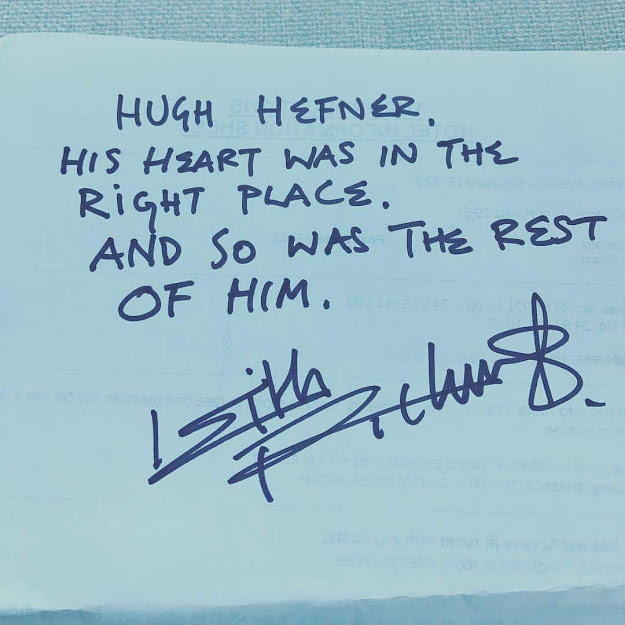 HUGH HEFNER.
HIS HEART WAS IN THE
RiGHT PLACE.
AND SO WAS THE REST
OF HIM.
Keith Richards